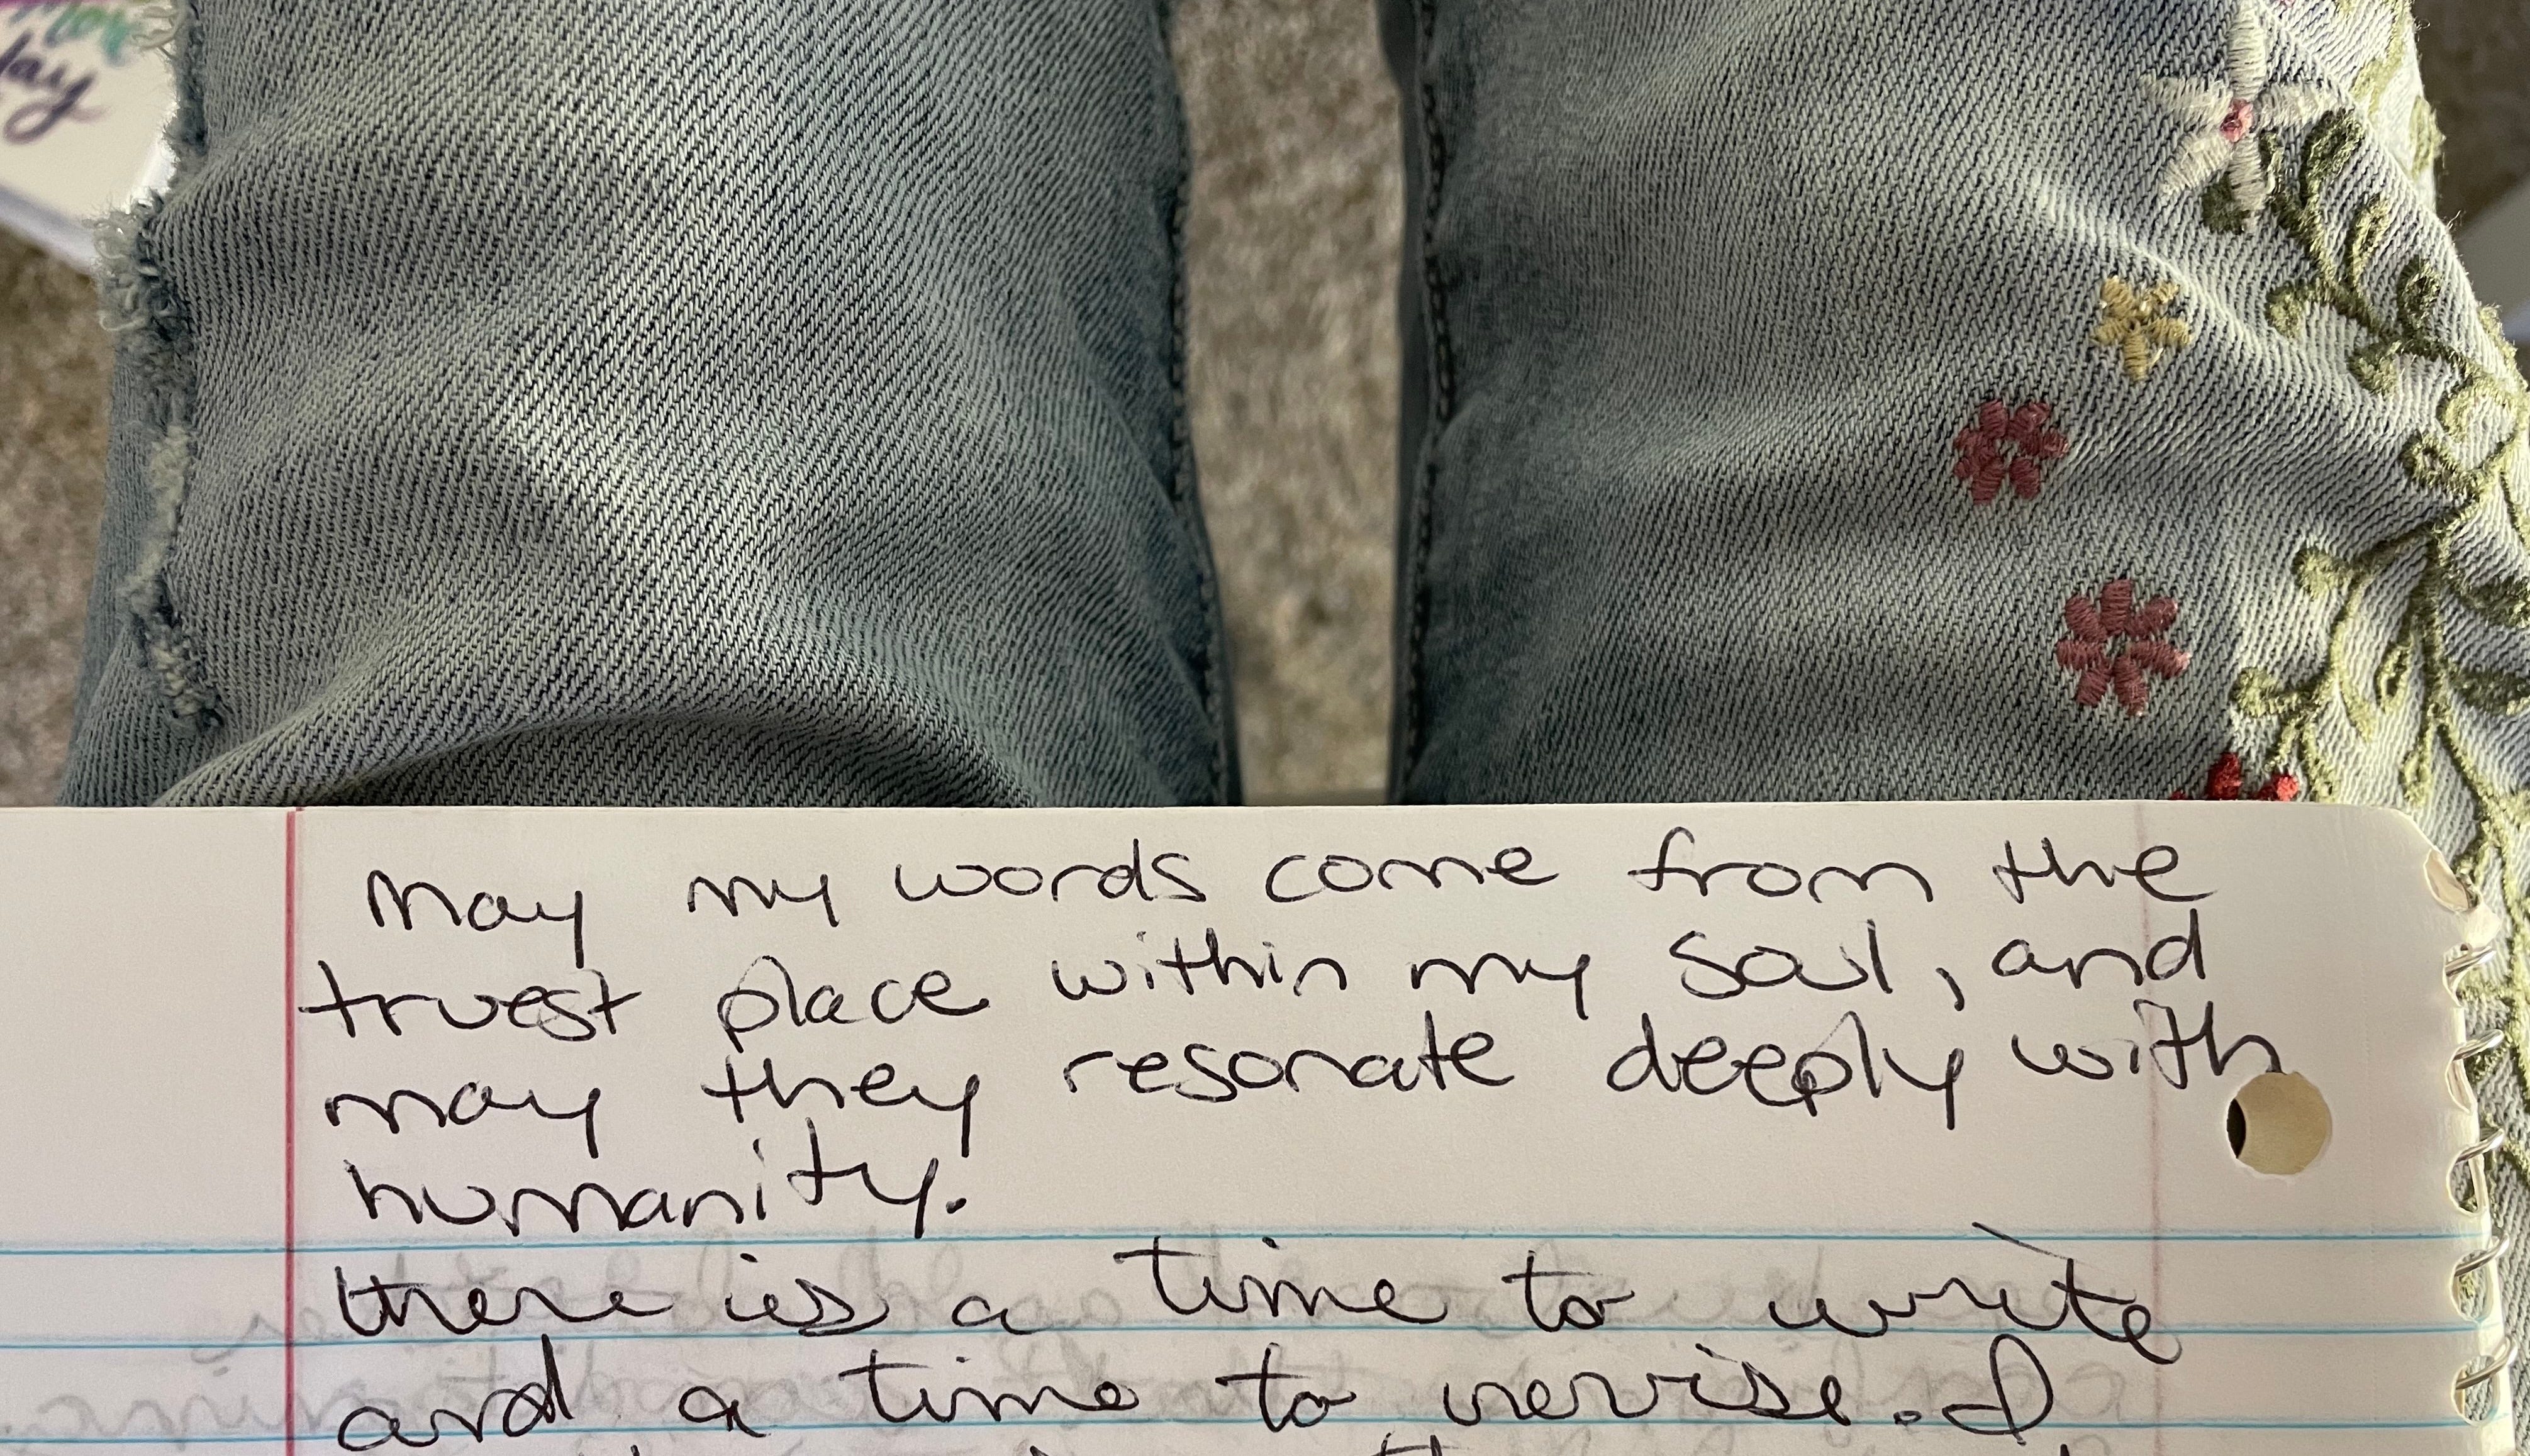 day
May my words come from the
truest place within my soul, and
may they resonate deeply with
humanity.
there is a time to write
and a time to revise. I